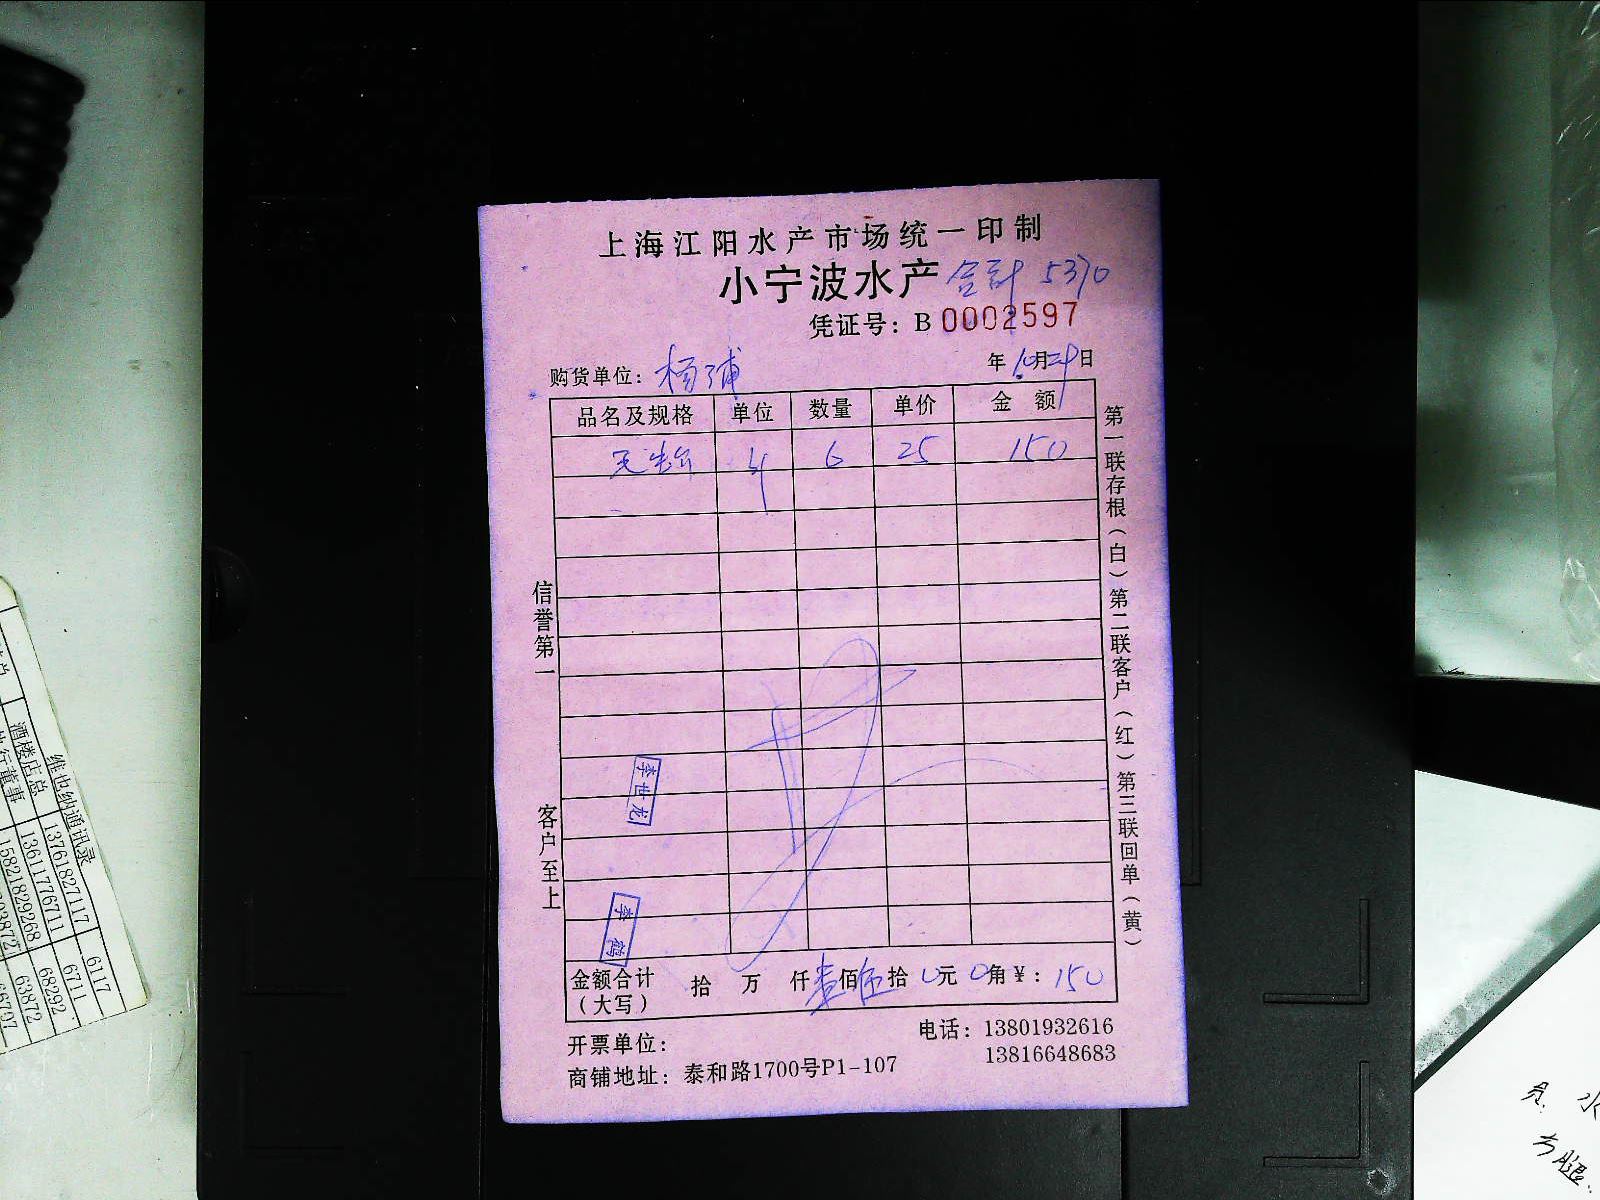 上海江阳水产市场统一印制
小宁波水产 合计 5370
凭证号：B 0002597
购货单位：杨浦 年10月29日
品名及规格 单位 数量 单价 金额
6 25 150
信誉第一
客户至上
第一联存根（白）第二联客户（红）第三联回单（黄）
李世龙
李鹤
金额合计（大写） 拾 万 仟壹佰伍拾0元0角¥：150
开票单位：
电话：13801932616
13816648683
商铺地址：泰和路1700号P1-107
维也纳通讯录
酒楼店总 13761827117 6117
执行董事 13611776711 6711
15821829268 68292
63872